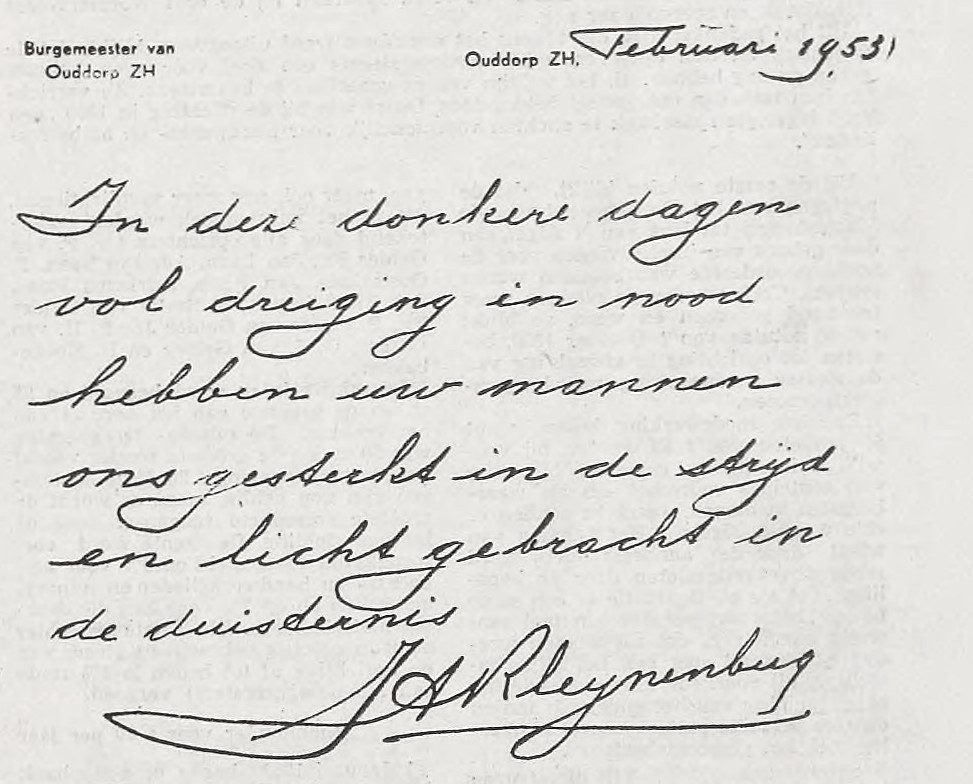 Burgemeester van
Ouddorp ZH
Ouddorp ZH, Februari 1953
In deze donkere dagen
vol dreiging en nood
hebben uw mannen
ons gesterkt in de strijd
en licht gebracht in
de duisternis
JAKleynenburg